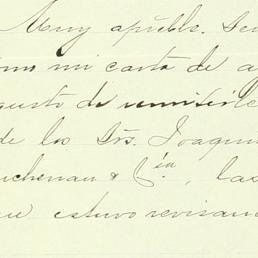 Muy apreble. Señ
como mi carta de a
gusto de remitirle
de los Srs. Joaquin
uchenau & Cía, las
estuvo revisan